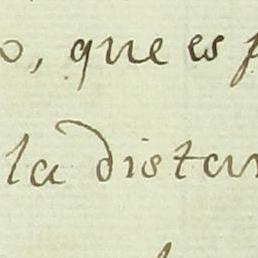 o, que es p
la distan